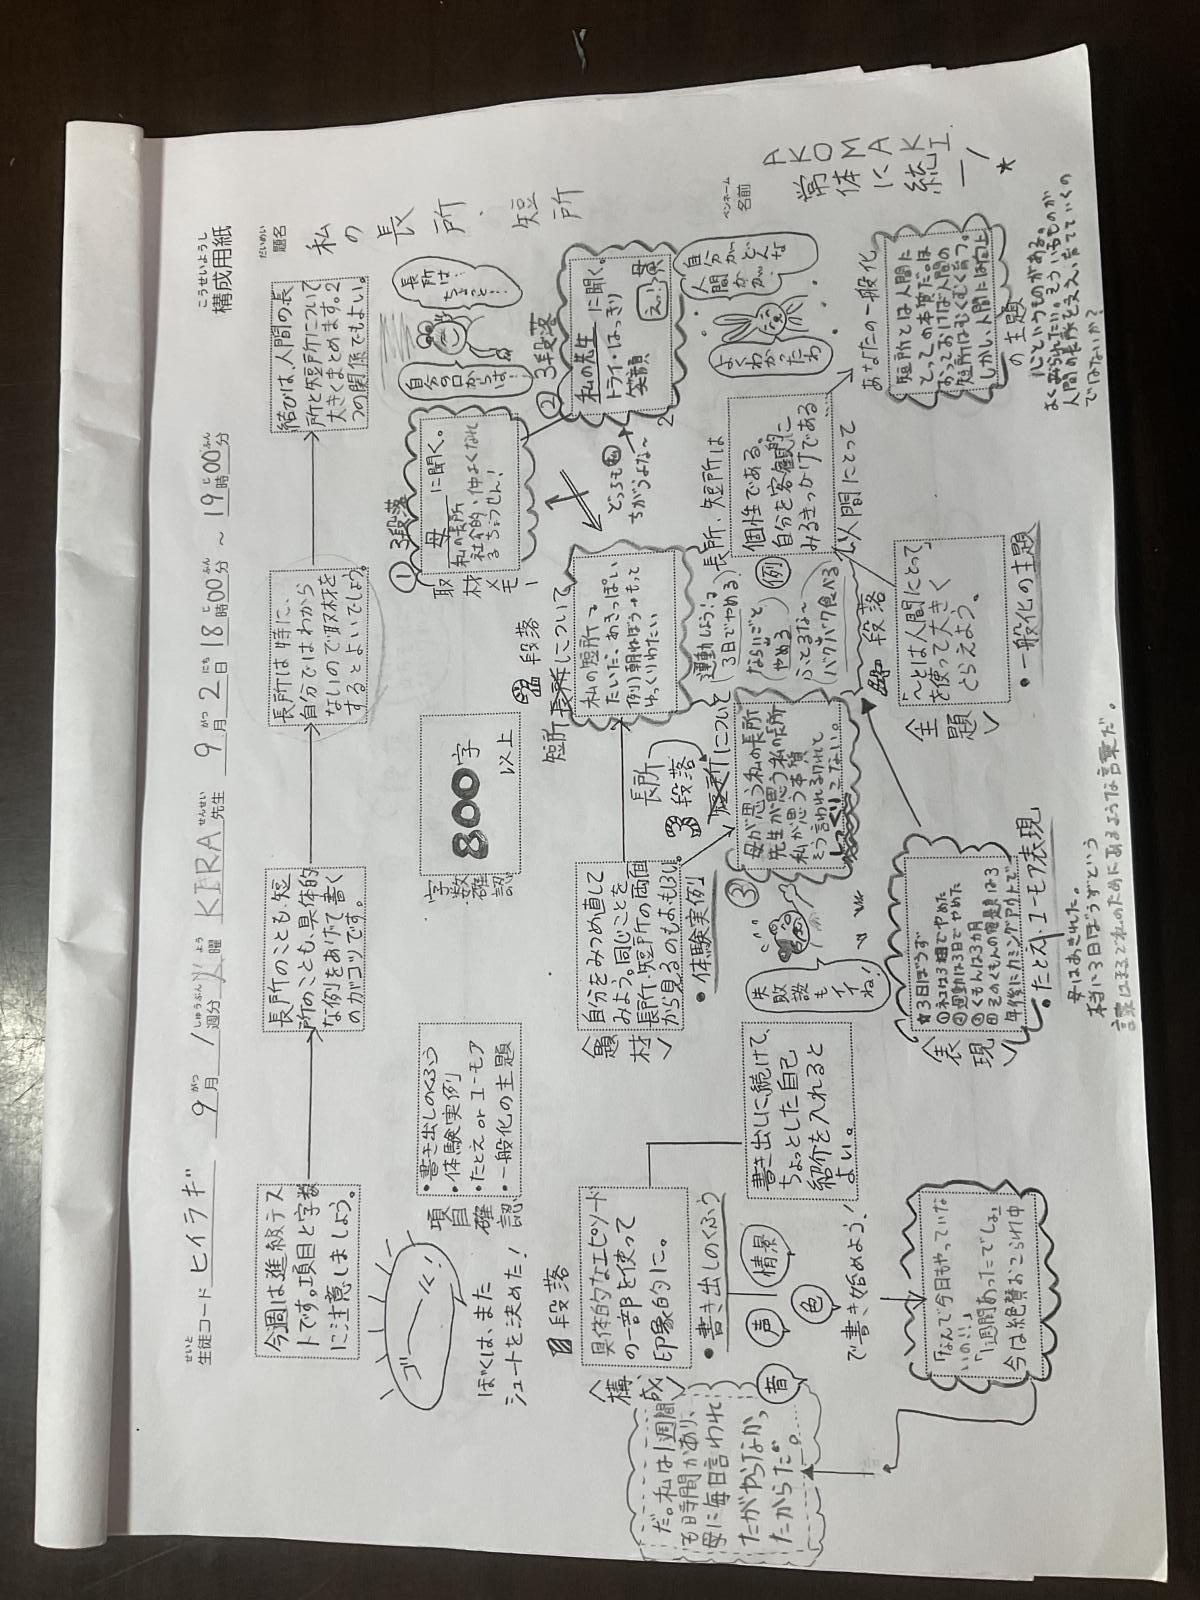 こうせいようし
構成用紙
せいと
生徒コード ヒイラギ 9月 1週分 KIRA先生 9月2日18時00分～19時00分
今週は進級テス
トです。項目と字数
に注意しましょう。
長所のことも、短
所のことも、具体的
な例をあげて書く
のがコツです。
長所は特に、
自分ではわから
ないので取材を
するとよいでしょう。
結びは、人間の長
所と短所について
大きくまとめます。2
つの関係でもよい。
だいめい
題名
私の長所、短所
ペンネーム
名前
AKOMAKI
常体に統一
★
ゴーーール!
ぼくは、また
シュートを決めた!
項目確認
・書き出しのくふう
・体験実例
・たとえ or ユーモア
・一般化の主題
字数確認
800字
以上
①3段落
母に聞く。
私の長所
社会的、仲よくなれ
るちょうせん!
取材メモ
②3段落
私の先生に聞く。
トライ・はっきり
笑顔
自分の口からは!
長所はちょっと!
自分がどんな人間かが
よくわかったわ
どっちも
ちがうよな～
段落
〈構成〉
具体的なエピソード
の一部を使って
印象的に。
・書き出しのくふう
音
声
色
情景
で書き始めよう!
書き出しに続けて、
ちょっとした自己
紹介を入れると
よい。
「なんで今日もやっていな
いの!!」
「1週間あったでしょ」
今は絶賛おこられ中
だ。私は1週間
も時間があり、
母に毎日言われ
たがやらなかっ
たからだ。
〈題材〉
自分をみつめ直して
みよう。同じことを
長所・短所の両面
から見るのもおもしろい。
・体験実例
長所
段落
短所について
③
母が思う私の長所
先生が思う私の長所
私が思う本質
そう言われるけれど
しっくりこない。
失敗談もイイね!
短所
段落
長所について
私の短所で
たいだ、あきっぽい
例)朝ねぼう→もって
ゆっくりねたい
運動しよう!る
3日でやめる
ならいごと
やめる
ふとるな～
バクバク食べる
例
長所、短所は
個性である。
自分を客観的に
みるきっかけである
人間にとって
段落
〈主題〉
「～とは人間にとって」
を使って大きく
とらえよう。
・一般化の主題
あなたの一般化
の主題
短所とは人間に
とっての本質だ。ほ
おっておけば人間の
短所はむくむく育つ。
しかし、人間には向上
心というものがある。
人間の長所を支え、育てていくの
ではないか?
〈表現〉
★3日ぼうず
②運動は3日でやめた
③くもんは3カ月
・たとえ・ユーモア表現
母はあきれた。
本当に3日ぼうずという
言葉はまるでこれのためにあるような言葉だ。